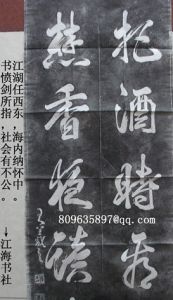 把酒時看
焚香夜讀
江湖任西东，海内纳怀中。
书愤剑所指，社会有不公。
→江海书社
809635897@qq.com